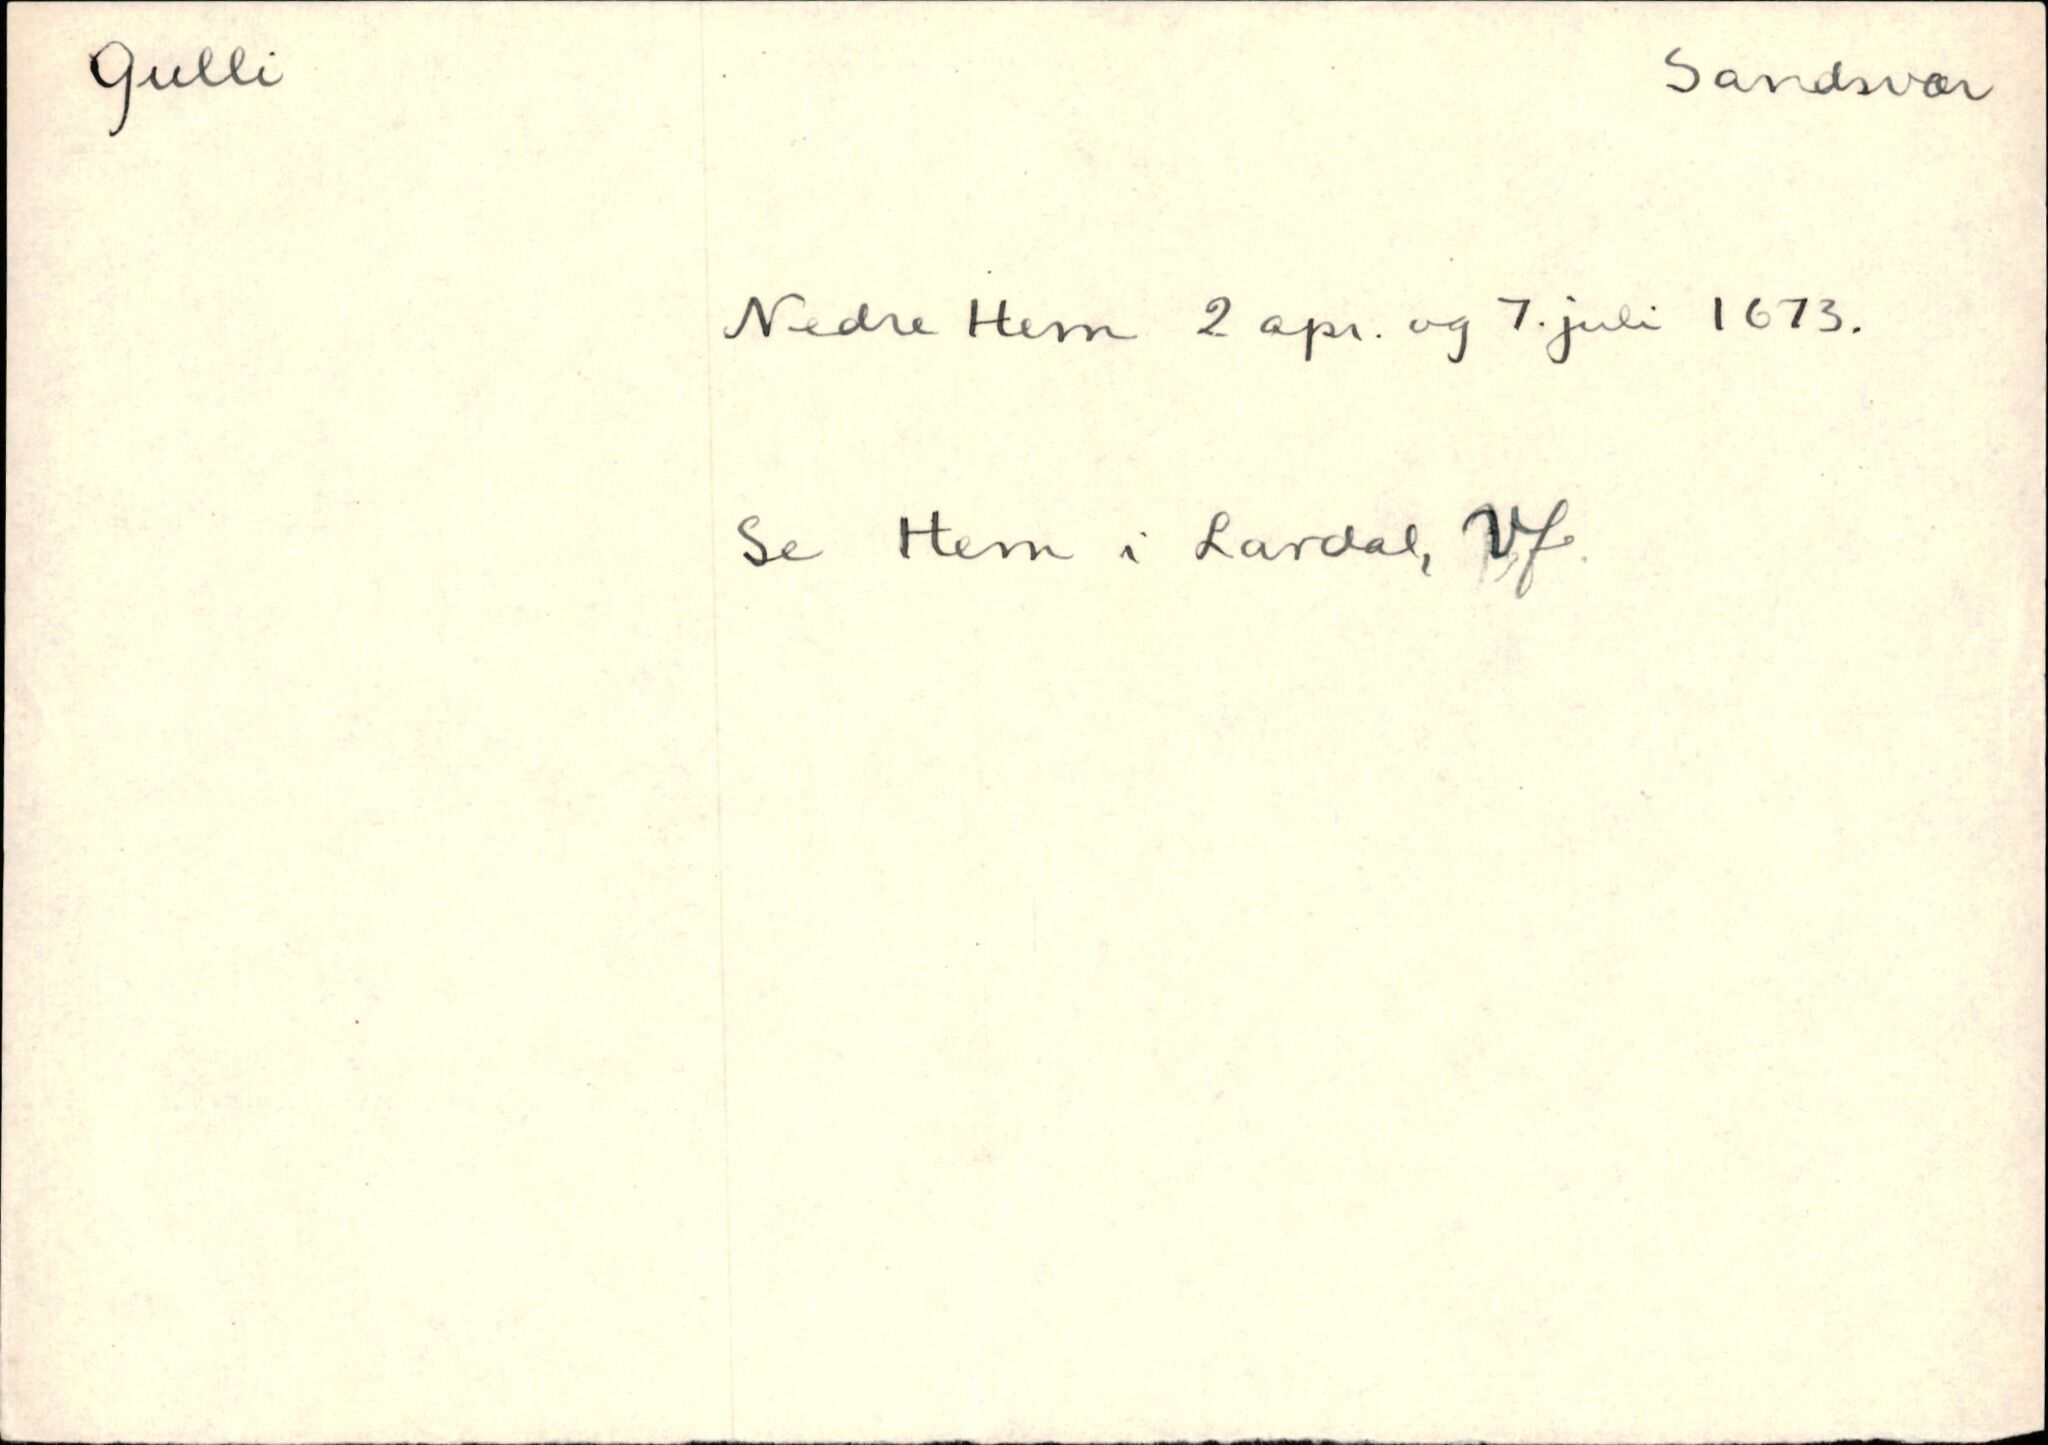 Gulli Sandsvær
Nedre Hem 2 apr. og 7. juli 1673.
Se Hem i Lardal, Vf.